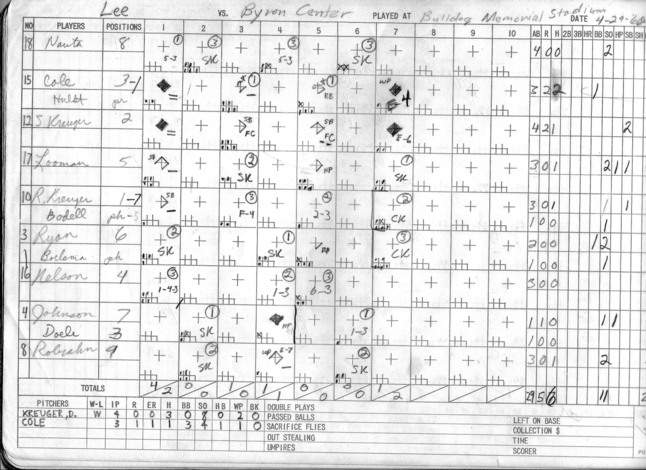 Lee VS. Byron Center PLAYED AT Bulldog Memorial Stadium DATE 4-29-
NO PLAYERS POSITIONS 1 2 3 4 5 6 7 8 9 10 AB R H 2B 3B HR BB SO HP SB SH
18 Nauta 8 1 5-3 3 SK 3 5-3 3 SK 4 0 0 2
15 Cole 3-1 1 1 BB WP 3 2 2 1
Hulst pr 4
12 S Kreuger 2 SB FC SB FC E-6 4 2 1 2
17 Looman 5 SB 2 SK HP 1 SK 3 0 1 2 1 1
10 R. Kreuger 1-7 SB 3 F-4 2 2-3 2 CK 3 0 1 1 1
Bodell ph-5 1 0 0 1
3 Ryan 6 2 SK 1 SK BB 3 CK 2 0 0 1 2
Boelema ph 1 0 0 1
16 Nelson 4 3 1-4-3 2 1-3 3 6-3 3 0 0
4 Johnson 7 1 SK HP 1 1-3 1 1 0 1 1
Doele 3 1 0 0
8 Robrahn 9 2 SK WP E-7 2 SK 3 0 1 2
TOTALS 4 2 0 0 1 0 1 1 0 0 0 0 1 2 29 5 6 11
PITCHERS W-L IP R ER H BB SO HB WP BK DOUBLE PLAYS
KREUGER, D. W 4 0 0 3 0 8 0 2 0 PASSED BALLS LEFT ON BASE
COLE 3 1 1 1 3 4 1 1 0 SACRIFICE FLIES COLLECTION $
OUT STEALING TIME
UMPIRES SCORER